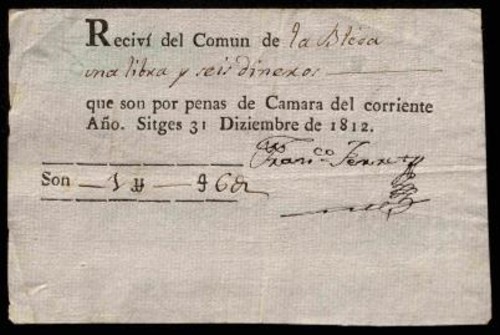 Reciví del Comun de la Bleda
una libra y seis dineros
que son por penas de Camara del corriente
Año. Sitges 31 Diziembre de 1812.
Franco. Ferrer
Son 1 ₶ 6